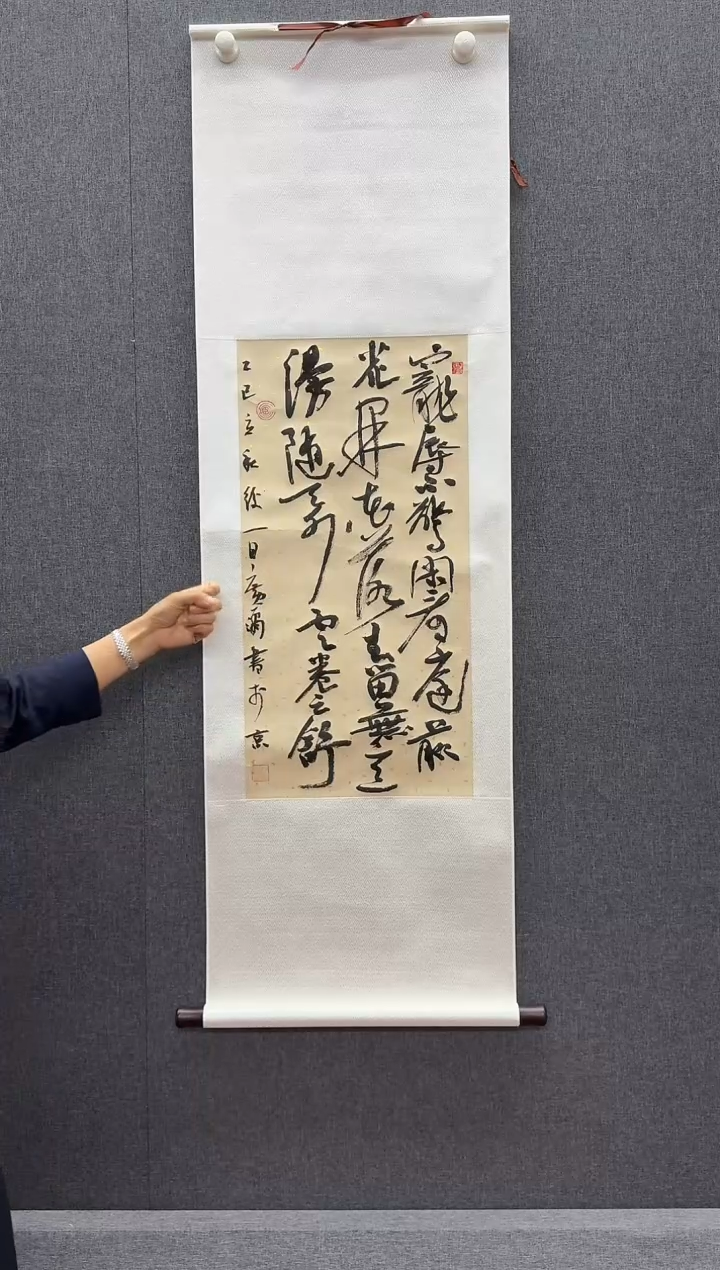 寵辱不驚閑看庭前
花開花落去留無意
漫隨天外雲卷雲舒
乙巳立秋後一日書於京